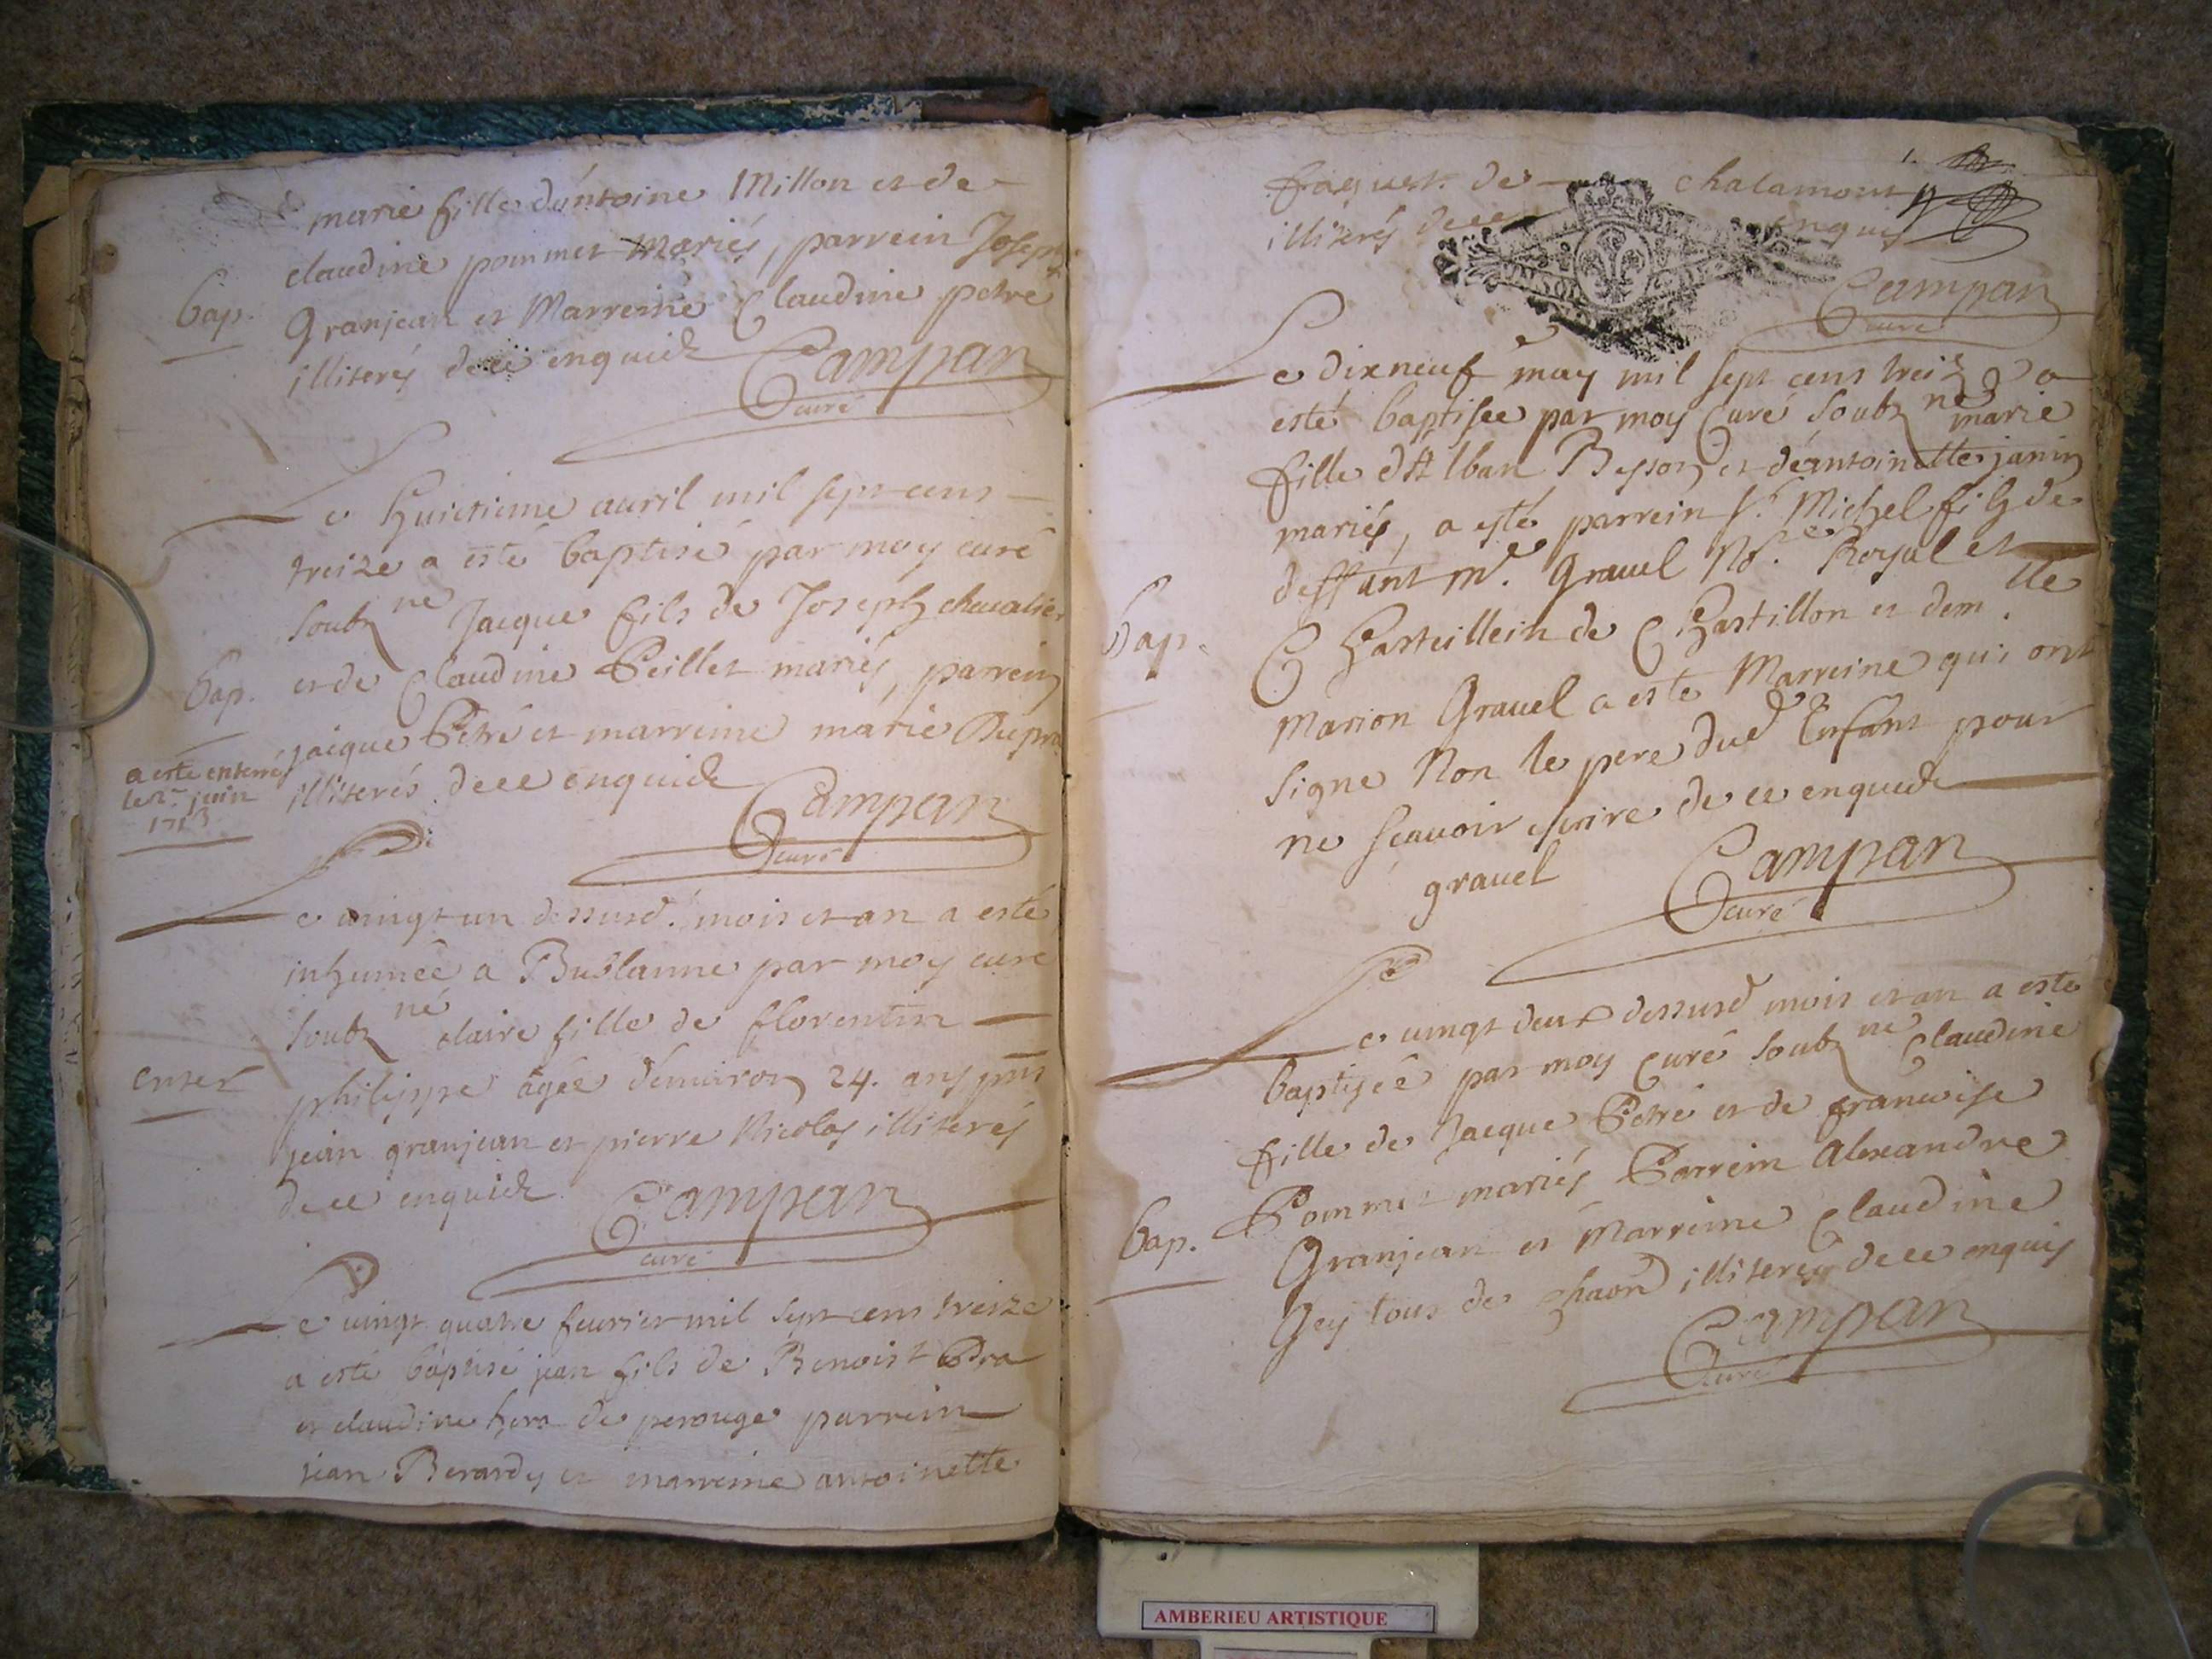 marie fille d'antoine Millon et de
claudine pommet mariés, parrein Joseph
bap.
Granjean et Marreine Claudine petré
illiterés dece enquich Campan
curé
Le huictieme auril mil sept cens
treize a esté baptisé par moy curé
soubzné Jacque fils de Joseph cheualier
bap.
et de Claudine Peillet mariés, parrein
jacque Petré et marreine marie Dupra
a esté enterré
le 2e juin
1713
illiterés dece enquich
Campan
curé
Le uingt un dessusd. mois et an a esté
inhumée a Bublanne par moy curé
soubzné claire fille de florentin
enter
philippe agée d'enuiron 24. ans pnts
jean granjean et pierre Nicolas illiterés
dece enquich Campan
curé
Le uingt quatre feurier mil sept cens treize
a esté baptisé jean fils de Benoist
et claudine de perouge parrein
jean Berardy et marreine antoinette
faguet de chalamont
illiterés dece enquis
Campan
curé
Le dixneuf may mil sept cens treize a
esté baptisée par moy Curé soubzné marie
fille d'Alban Beyson et d'antoinette janin
mariés, a esté parrein Sr. Michel filz de
deffunt Me. Grauel Nore. Royal et
bap.
Chasteillein de Chastillon et demlle
Marion Grauel a esté Marreine qui ont
signe Non le pere dud Enfant pour
ne scauoir escrire de ce enquich
grauel Campan
curé
Le uingt deux dessusd mois et an a esté
baptisée par moy Curé soubzné Claudine
fille de Jacque Petré et de francoise
bap.
Pommet mariés Parrein Alexandre
Granjean et Marreine Claudine
Gey tous de illiterés dece enquis
Campan
curé
AMBERIEU ARTISTIQUE